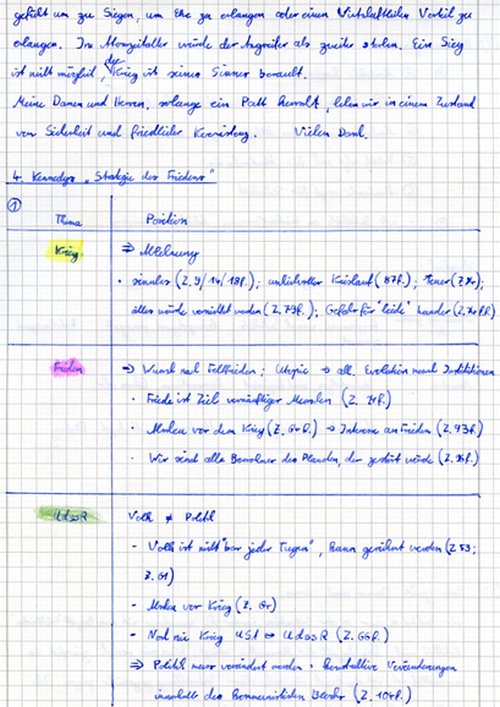 geführt um zu Siegen, um Ehe zu erlangen oder einen Wirtschaftlichen Vorteil zu
erlangen. Im Atomzeitalter würde der Angreifer als zweiter sterben. Ein Sieg
ist nicht möglich, der Krieg ist seines Sinnes beraubt.
Meine Damen und Herren, solange ein Patt herrscht, leben wir in einem Zustand
von Sicherheit und friedlicher Koexistenz. Vielen Dank.
4. Kennedys „Strategie des Friedens"
①
Thema Position
Krieg ⇒ Ablehnung
· sinnlos (Z. 9/14/18f.); unheilvoller Kreislauf (87f.); teuer
alles würde vernichtet werden (Z. 79f.); Gefahr für "beide"
Frieden → Wunsch nach Weltfrieden; Utopie → all. Evolution menschl. Institutionen
· Friede ist Ziel vernünftiger Menschen
· vor dem Krieg → Interesse an Frieden (Z. 93f.)
· Wir sind alle Bewohner des Planeten, der zerstört würde
UdSSR Volk ≠ Politik
- Volk ist nicht "bar jeder Tugend", kann gerühmt werden (Z. 59;
Z. 61)
- vor Krieg
- Noch nie Krieg USA ↔ UdSSR (Z. 66f.)
⇒ Politik muss verändert werden · konstruktive Veränderungen
innerhalb des Kommunistischen Blocks (Z. 104f.)